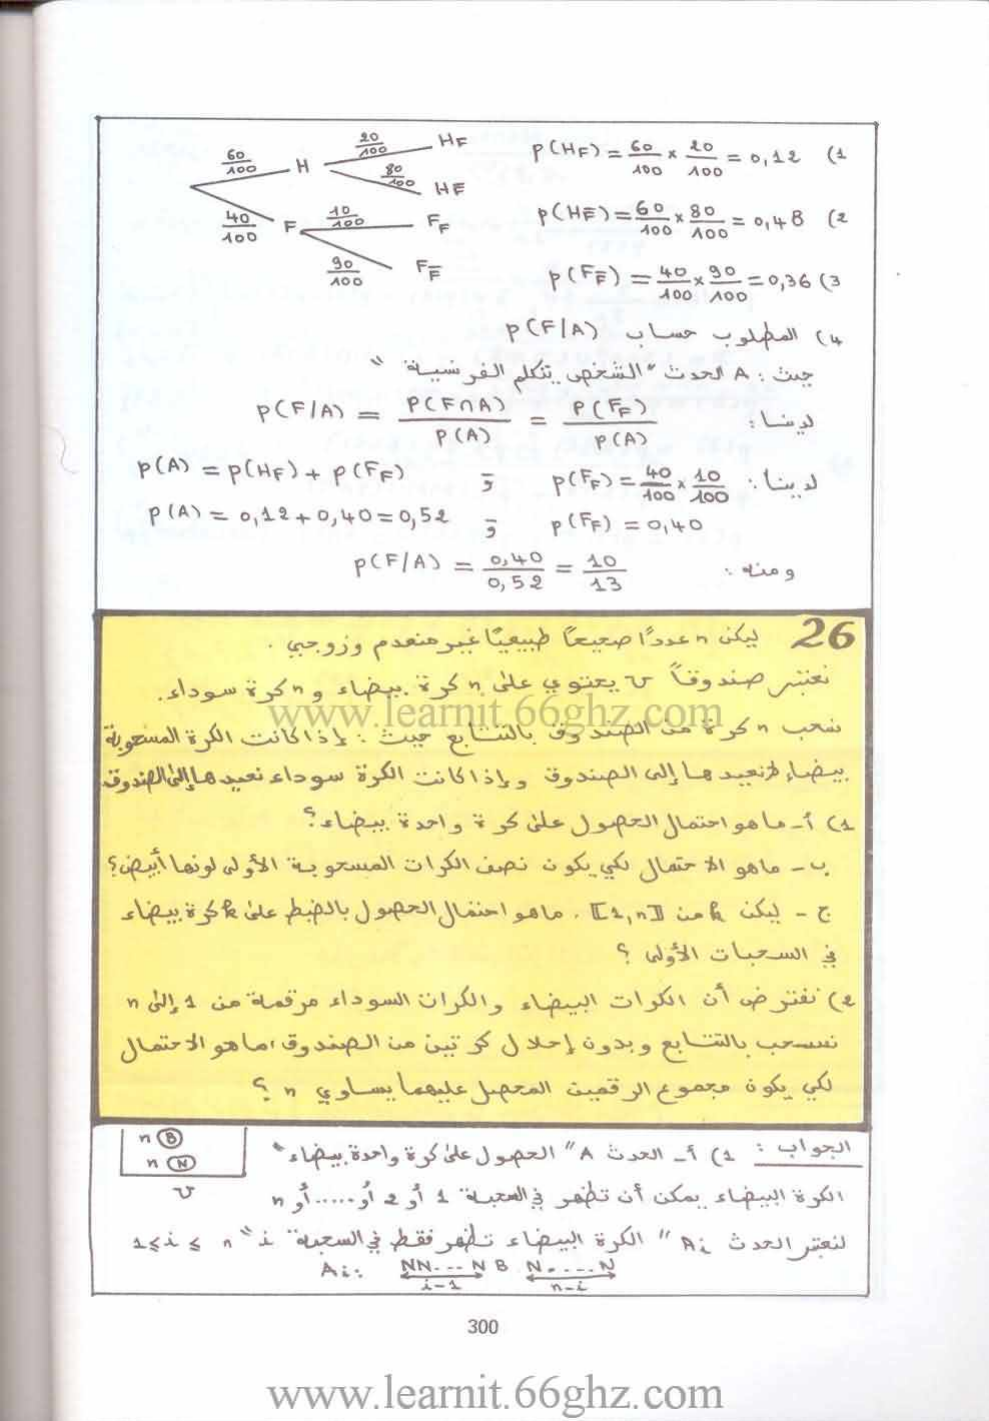 60/100 H 20/100 HF
80/100 HF̅
40/100 F 10/100 FF
90/100 FF̅
1) p(HF) = 60/100 × 20/100 = 0,12
2) p(HF̅) = 60/100 × 80/100 = 0,48
3) p(FF̅) = 40/100 × 90/100 = 0,36
4) المطلوب حساب p(F/A)
حيث : A الحدث "الشخص يتكلم الفرنسية"
لدينا : p(F/A) = P(F∩A)/p(A) = P(FF)/p(A)
لدينا : p(FF) = 40/100 × 10/100 و p(A) = p(HF) + p(FF)
p(FF) = 0,40 و p(A) = 0,12 + 0,40 = 0,52
ومنه : p(F/A) = 0,40/0,52 = 10/13
26 ليكن n عددًا صحيحًا طبيعيًا غير منعدم وزوجي .
نعتبر صندوقاً U يحتوي على n كرة بيضاء و n كرة سوداء.
www.learnit.66ghz.com
نسحب n كرة من الصندوق بالتتابع حيث : إذا كانت الكرة المسحوبة
بيضاء لا نعيدها إلى الصندوق وإذا كانت الكرة سوداء نعيدها إلى الصندوق
1) أ- ما هو احتمال الحصول على كرة واحدة بيضاء ؟
ب - ما هو الاحتمال لكي يكون نصف الكرات المسحوبة الأولى لونها أبيض ؟
ج - ليكن k من [[1,n]] . ما هو احتمال الحصول بالضبط على k كرة بيضاء
في السحبات الأولى ؟
2) نفترض أن الكرات البيضاء والكرات السوداء مرقمة من 1 إلى n
نسحب بالتتابع وبدون إحلال كرتين من الصندوق ، ما هو الاحتمال
لكي يكون مجموع الرقمين المحصل عليهما يساوي n ؟
الجواب : 1) أ- الحدث A "الحصول على كرة واحدة بيضاء"
n B
n N
U
الكرة البيضاء يمكن أن تظهر في السحبة 1 أو 2 أو ..... أو n
لنعتبر الحدث Ai "الكرة البيضاء تظهر فقط في السحبة i" 1≤i≤n
Ai : NN...N B N....N
i-1 n-i
300
www.learnit.66ghz.com